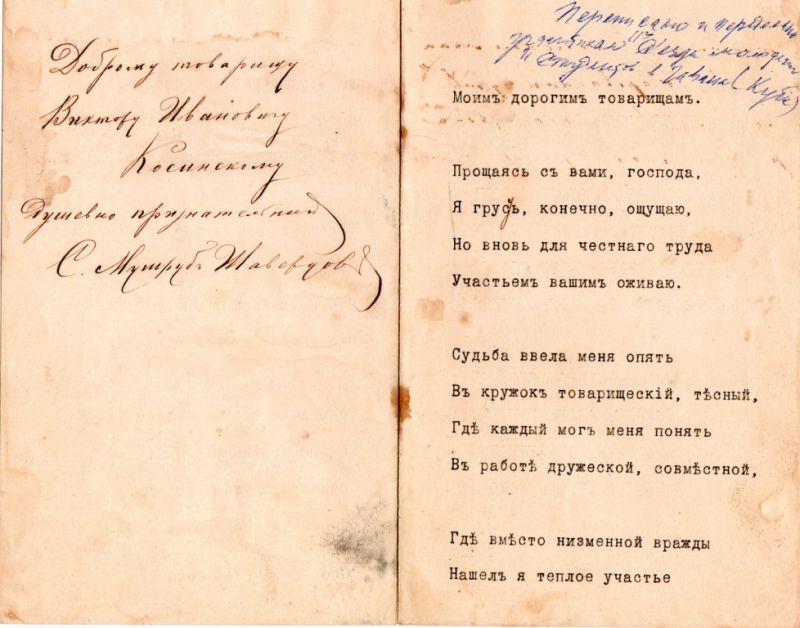 Доброму товарищу
Виктору Ивановичу
Косинскому
душевно признательный
С. Мушрубъ Шавердовъ
Переписано и
участникам съезда молодежи
и студентов в (Куба)
Моимъ дорогимъ товарищамъ.
Прощаясь съ вами, господа,
Я грусть, конечно, ощущаю,
Но вновь для честнаго труда
Участьемъ вашимъ оживаю.
Судьба ввела меня опять
Въ кружокъ товарищескій, тѣсный,
Гдѣ каждый могъ меня понять
Въ работѣ дружеской, совмѣстной,
Гдѣ вмѣсто низменной вражды
Нашелъ я теплое участье